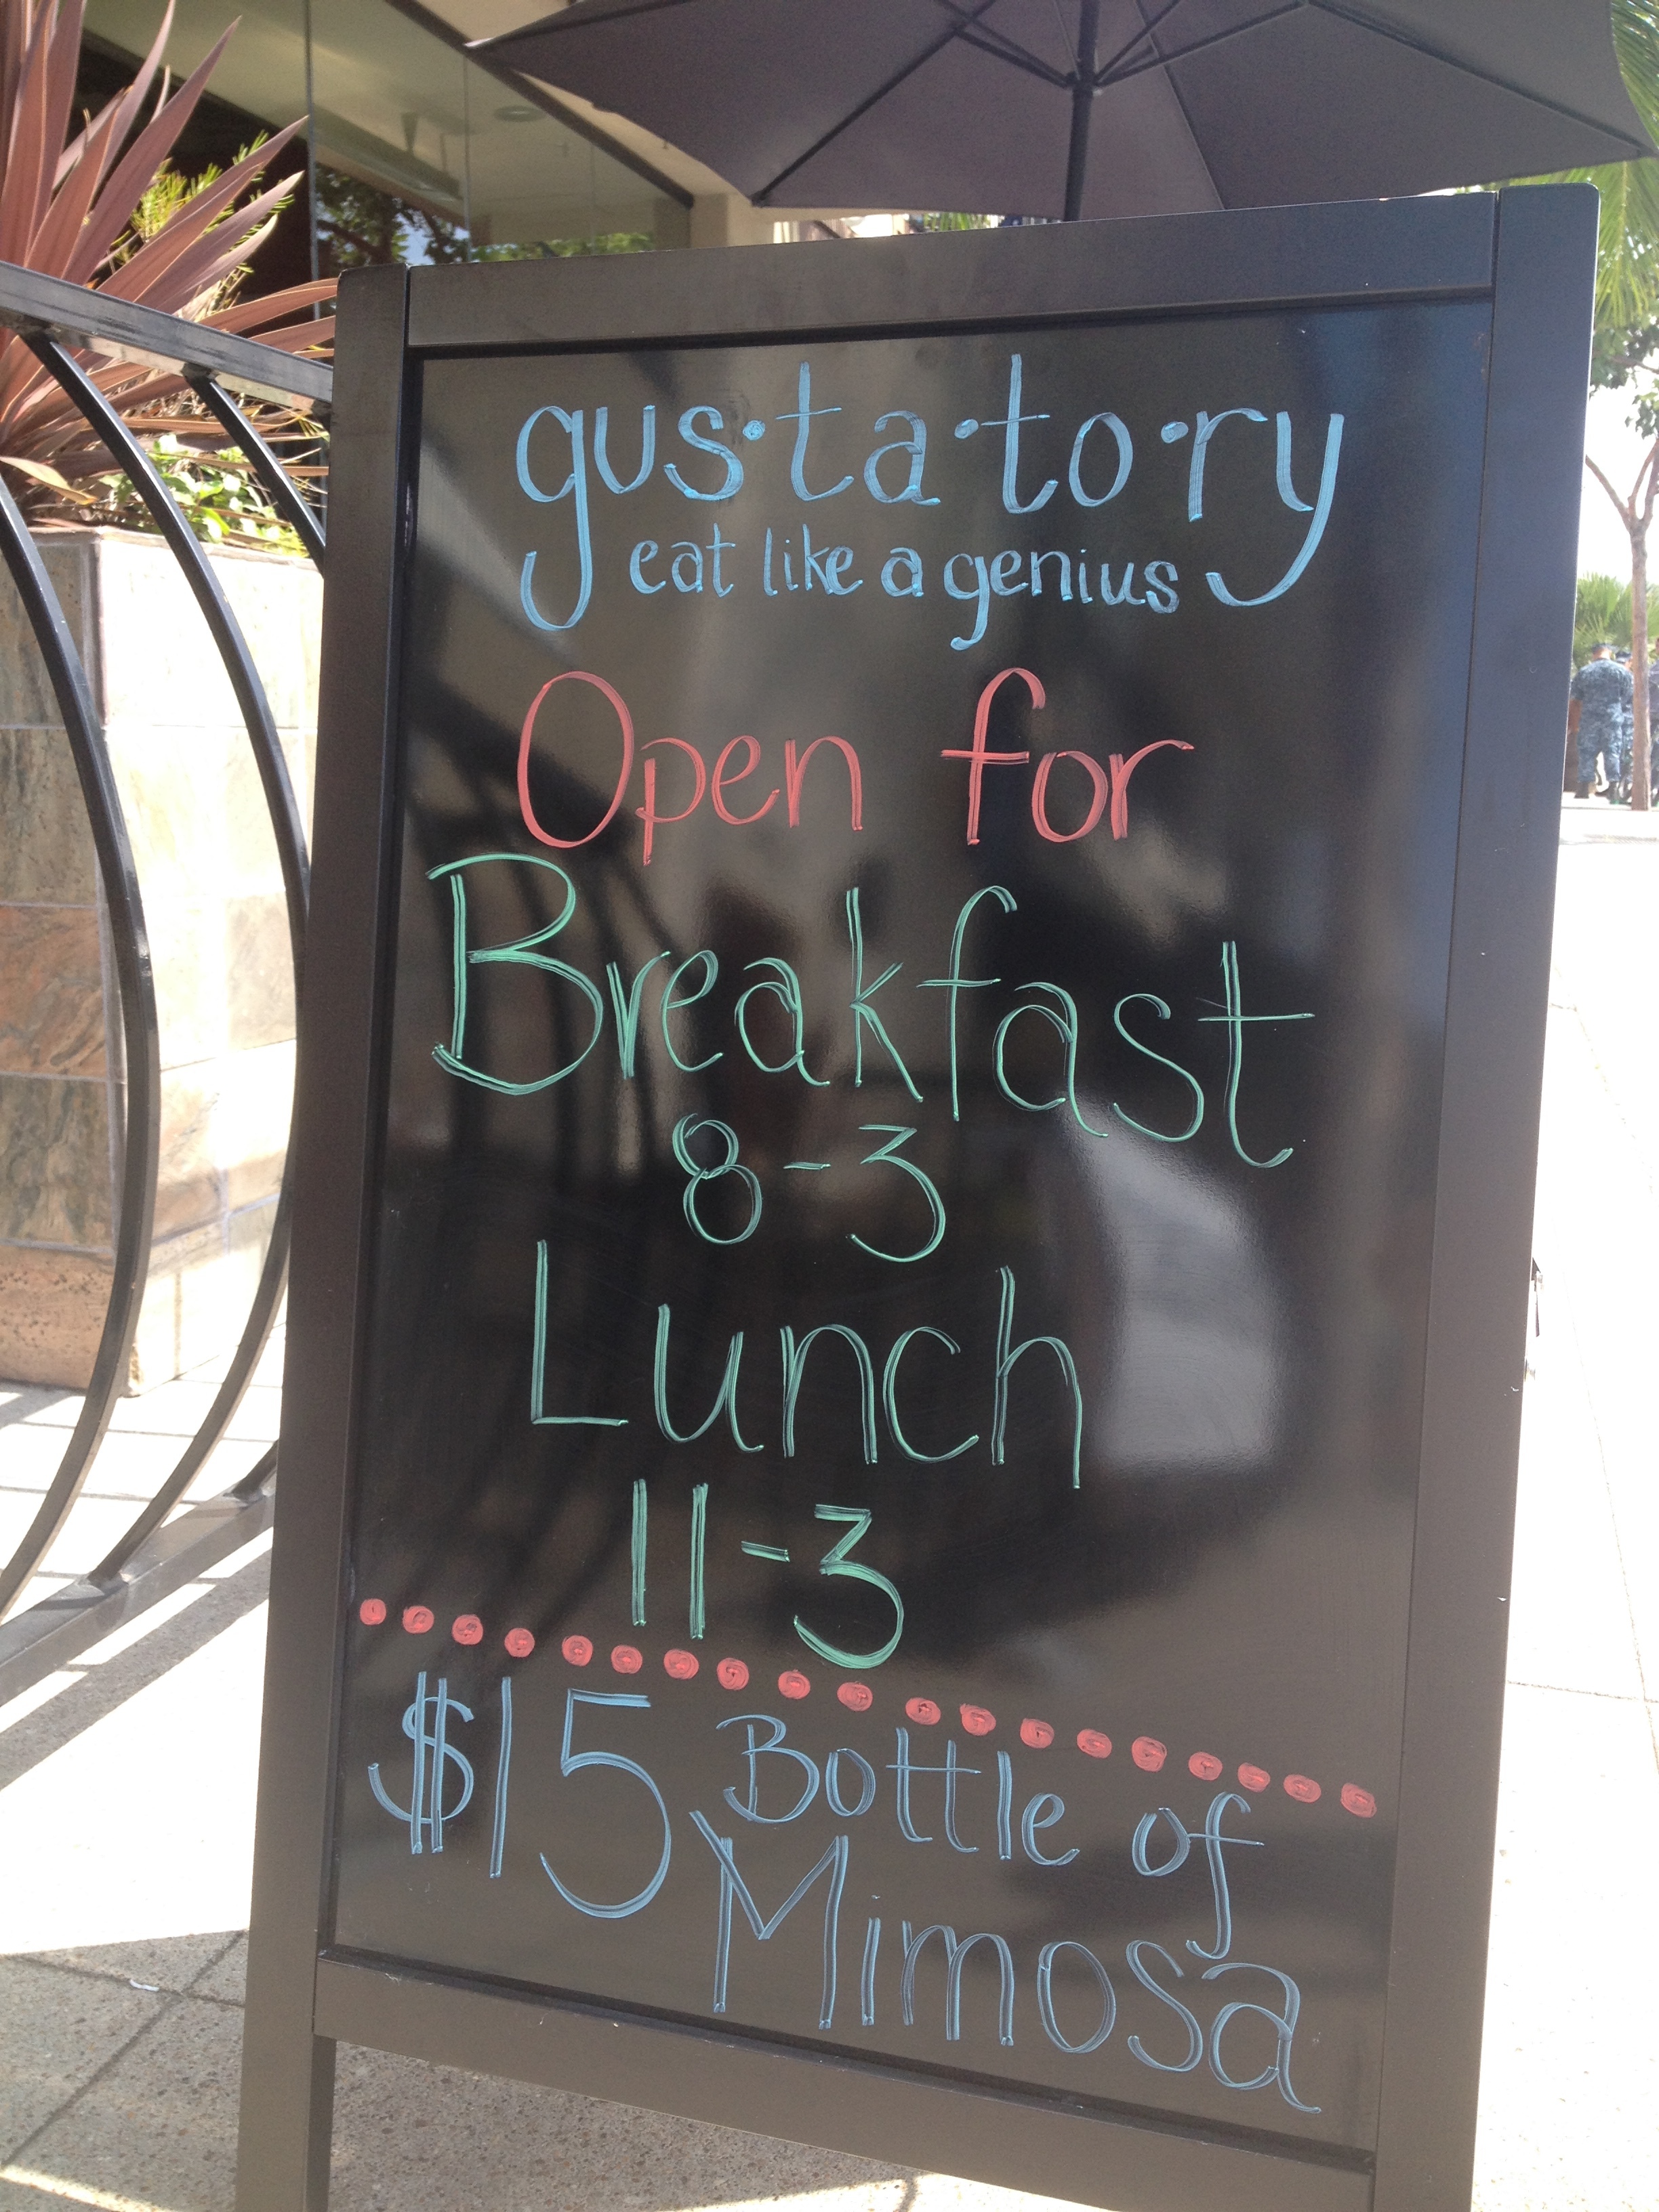 gus·ta·to·ry
eat like a genius
Open for
Breakfast
8-3
Lunch
11-3
$15 Bottle of
Mimosa